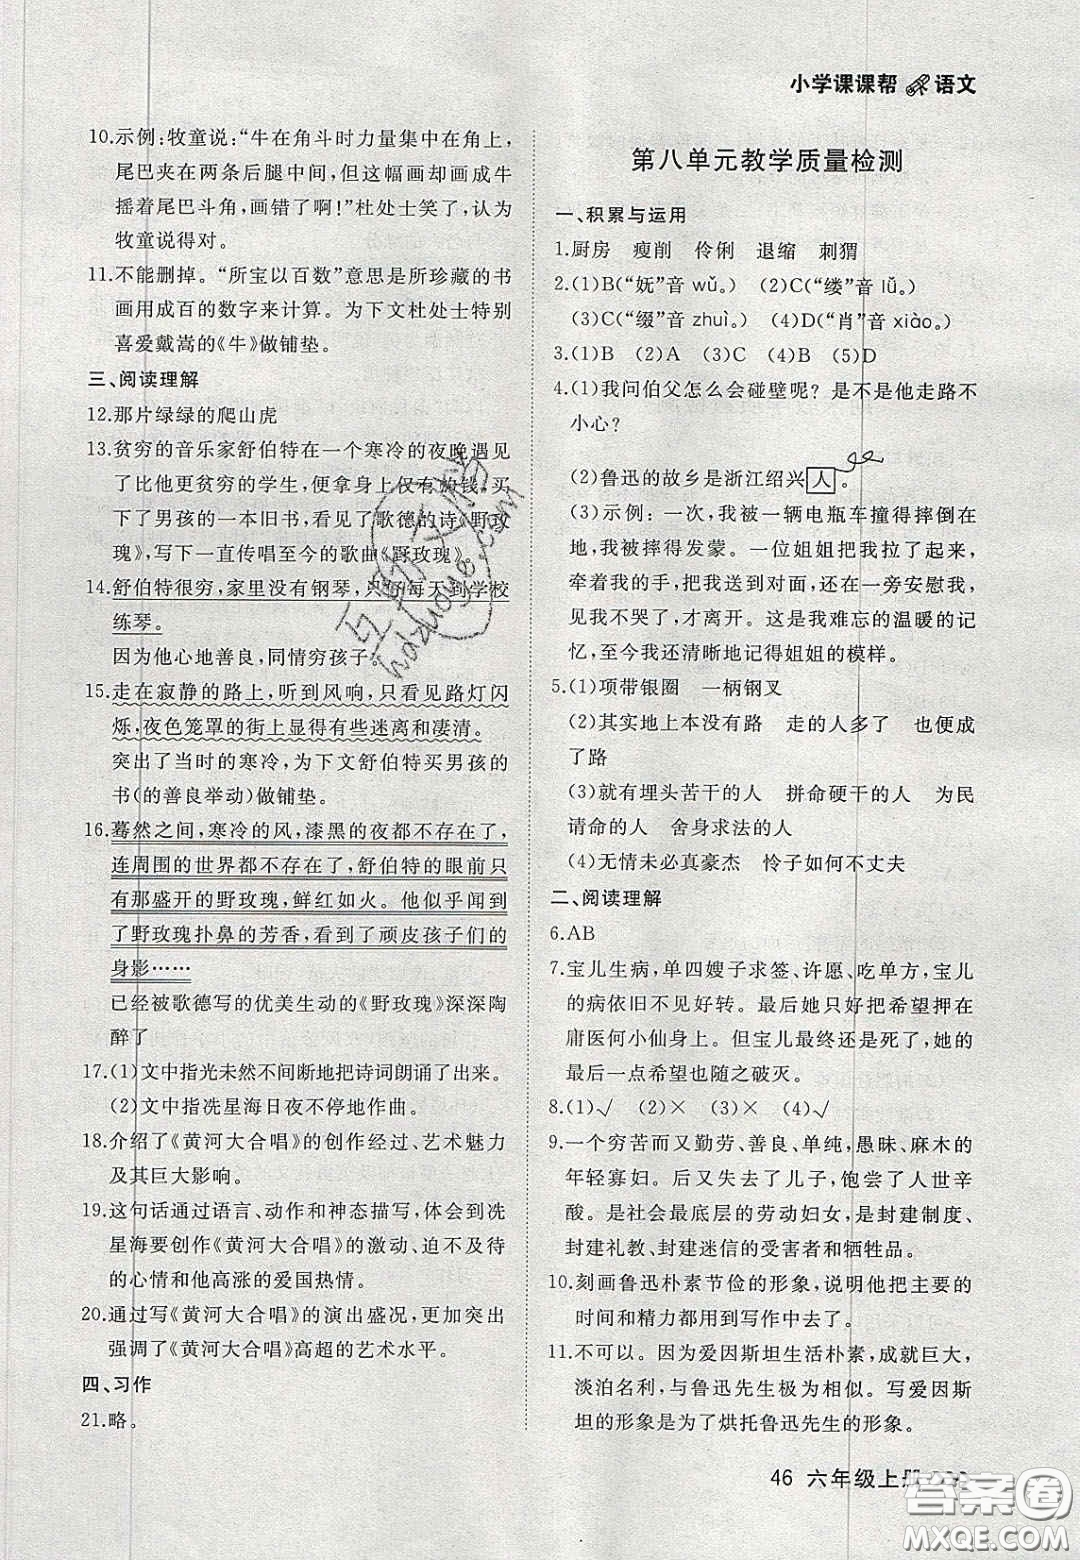 小学课课帮 语文
10.示例:牧童说:“牛在角斗时力量集中在角上,
尾巴夹在两条后腿中间,但这幅画却画成牛
摇着尾巴斗角,画错了啊!”杜处士笑了,认为
牧童说得对。
11.不能删掉。“所宝以百数”意思是所珍藏的书
画用成百的数字来计算。为下文杜处士特别
喜爱戴嵩的《牛》做铺垫。
三、阅读理解
12.那片绿绿的爬山虎
13.贫穷的音乐家舒伯特在一个寒冷的夜晚遇见
了比他更贫穷的学生,便拿身上仅有的钱,买
下了男孩的一本旧书,看见了歌德的诗《野玫
瑰》,写下一直传唱至今的歌曲《野玫瑰》。
14.舒伯特很穷,家里没有钢琴,只好每天到学校
练琴。
因为他心地善良,同情穷孩子。
15.走在寂静的路上,听到风响,只看见路灯闪
烁,夜色笼罩的街上显得有些迷离和凄清。
突出了当时的寒冷,为下文舒伯特买男孩的
书(的善良举动)做铺垫。
16.蓦然之间,寒冷的风,漆黑的夜都不存在了,
连周围的世界都不存在了,舒伯特的眼前只
有那盛开的野玫瑰,鲜红如火。他似乎闻到
了野玫瑰扑鼻的芳香,看到了顽皮孩子们的
身影……
已经被歌德写的优美生动的《野玫瑰》深深陶
醉了
17.(1)文中指光未然不间断地把诗词朗诵了出来。
(2)文中指冼星海日夜不停地作曲。
18.介绍了《黄河大合唱》的创作经过、艺术魅力
及其巨大影响。
19.这句话通过语言、动作和神态描写,体会到冼
星海要创作《黄河大合唱》的激动、迫不及待
的心情和他高涨的爱国热情。
20.通过写《黄河大合唱》的演出盛况,更加突出
强调了《黄河大合唱》高超的艺术水平。
四、习作
21.略。
第八单元教学质量检测
一、积累与运用
1.厨房 瘦削 伶俐 退缩 刺猬
2.(1)B(“妩”音 wǔ。) (2)C(“缕”音 lǚ。)
(3)C(“缀”音 zhuì。) (4)D(“肖”音 xiào。)
3.(1)B (2)A (3)C (4)B (5)D
4.(1)我问伯父怎么会碰壁呢?是不是他走路不
小心?
(2)鲁迅的故乡是浙江绍兴人。
(3)示例:一次,我被一辆电瓶车撞得摔倒在
地,我被摔得发蒙。一位姐姐把我拉了起来,
牵着我的手,送我到对面,还在一旁安慰我,
见我不哭了,才离开。这是我难忘的温暖的记
忆,至今我还清晰地记得姐姐的模样。
5.(1)项带银圈 一柄钢叉
(2)其实地上本没有路 走的人多了 也便成
了路
(3)就有埋头苦干的人 拼命硬干的人 为民
请命的人 舍身求法的人
(4)无情未必真豪杰 怜子如何不丈夫
二、阅读理解
6.AB
7.宝儿生病,单四嫂子求签、许愿、吃单方,宝儿
的病依旧不见好转。最后她只好把希望押在
庸医何小仙身上。但宝儿最终还是死了,她的
最后一点希望也随之破灭。
8.(1)√ (2)× (3)× (4)√
9.一个穷苦而又勤劳、善良、单纯,愚昧、麻木的
年轻寡妇。后又失去了儿子,饱尝了人世辛
酸。是社会最底层的劳动妇女,是封建制度、
封建礼教、封建迷信的受害者和牺牲品。
10.刻画鲁迅朴素节俭的形象,说明他把主要的
时间和精力都用到写作中去了。
11.不可以。因为爱因斯坦生活朴素,成就巨大,
淡泊名利,与鲁迅先生极为相似。写爱因斯
坦的形象是为了烘托鲁迅先生的形象。
46 六年级上册
答案圈
MXQE.COM